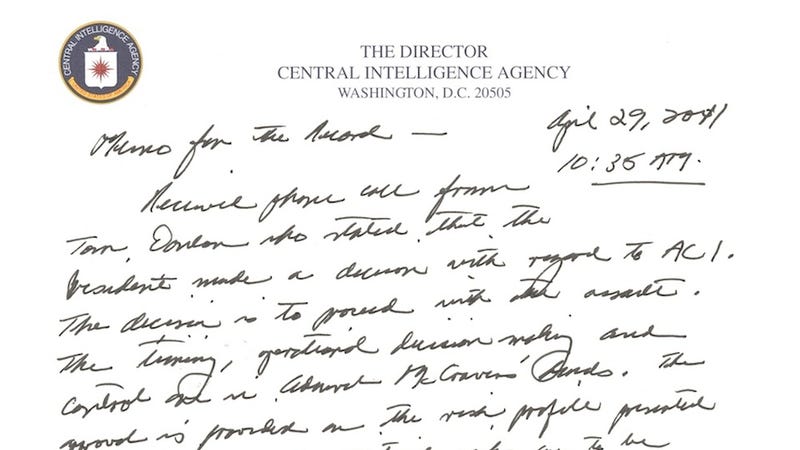 CENTRAL INTELLIGENCE AGENCY
UNITED STATES OF AMERICA
THE DIRECTOR
CENTRAL INTELLIGENCE AGENCY
WASHINGTON, D.C. 20505
April 29, 2011
Memo for the Record —
10:35 AM.
Received phone call from
Tom Donilon who stated that the
President made a decision with regard to AC1.
The decision is to proceed with the assault.
The timing, operational decision making and
control are in Admiral McCravens' hands. The
approval is provided on the risk profile presented
to be